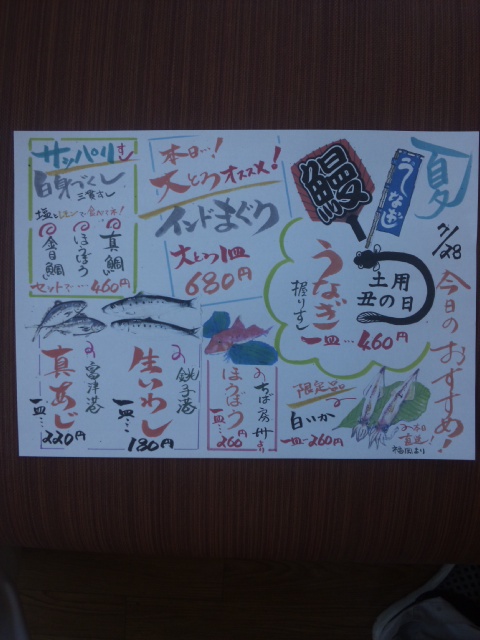 夏
7/28
今日のおすすめ!
鰻
うなぎ
土用
丑の日
うなぎ
握りずし
一皿…460円
限定品
白いか
一皿…260円
直送!
福岡より
本日…!
大とろオススメ!
インドまぐろ
大とろ1皿
680円
サッパリ
白身づくし
三貫
真鯛
ほうぼう
金目鯛
セットで…460円
ちば房州より
ほうぼう
一皿…260円
銚子港
生いわし
一皿…180円
富津港
真あじ
一皿…220円